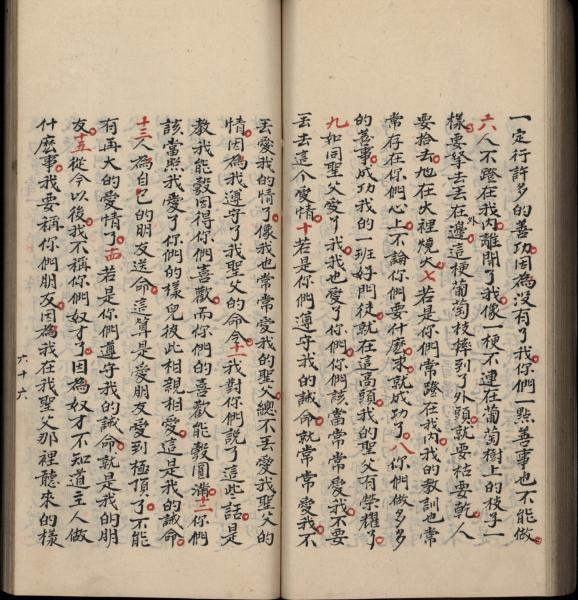 一定行許多的善功因為没有了我你們一點善事也不能做
六人不蹬在我内離開了我像一梗不連在葡萄樹上的枝子一
樣要拏去丟在外邊這梗葡萄枝摔到了外頭就要枯要乹人
要拾去他在火裡燒火七若是你們常蹬在我内我的教訓也常
常存在你們心上不論你們要什麼求就成功了八你們做多多
的善事成功我的一班好門徒就在這高頭我的聖父有榮耀了
九如同聖父愛了我我也愛了你們你們該當常常愛我不要
丟去這个愛情十若是你們遵守我的誡命就常常愛我不
丟愛我的情了像我也常常愛我的聖父總不丟愛我聖父的
情因為我遵守了我聖父的命令十一我對你們說了這些話是
教我能彀因得你們喜歡而你們的喜歡能彀圓滿十二你們
該當照我愛了你們的樣兒彼此相親相愛這是我的誡命
十三人為自己的朋友送命這算是愛朋友愛到極頂了不能
有再大的愛情了十四若是你們遵守我的誡命就是我的朋
友十五從今以後我不稱你們奴才了因為奴才不知道主人做
什麼事我要稱你們朋友因為我在我聖父那裡聽來的樣
六十六